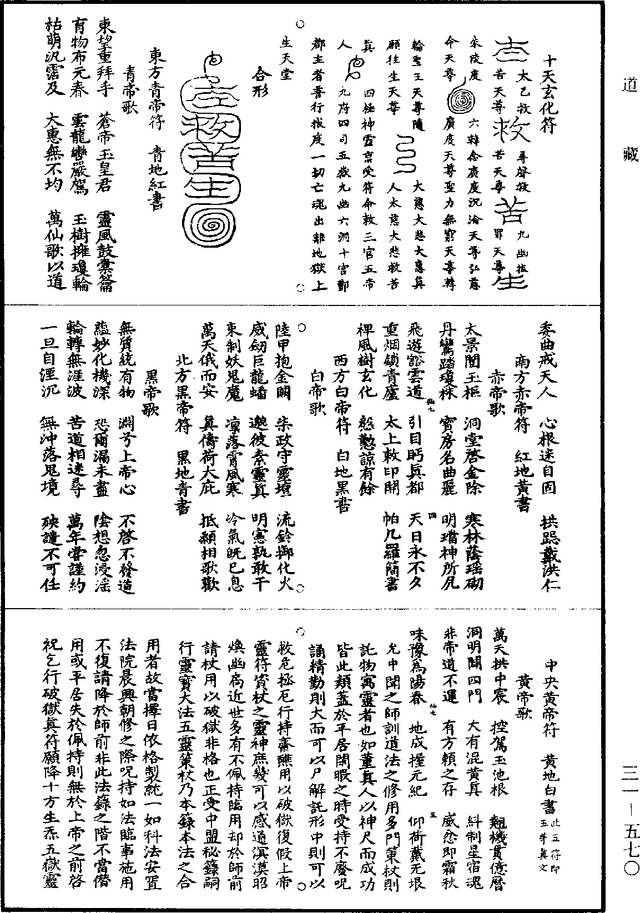 道藏
三一—五七〇
十天玄化符
太乙救苦天尊
尋聲救苦天尊
九幽拔罪天尊
命天尊 廣度天尊聖力無窮天尊轉
輪聖王天尊隨 大慈大悲大惠真
願往生天尊 人太慈大悲救苦
真 四極神靈稟受符命敕三官五帝
人 九府四司五嶽九幽六洞十宮酆
都主者普行拔度一切亡魂出離地獄上
生天堂
合形
東方青帝符 青地紅書
青帝歌
東望重拜手 蒼帝玉皇君 靈風鼓橐籥
育物布元春 雲龍嚮嚴駕 玉樹擁瓊輪
枯萌沉霈及 大惠無不均 萬仙歌以道
委曲戒天人 心根迷自固 拱跽戴洪仁
南方赤帝符 紅地黃書
赤帝歌
太景閶玉樞 洞堂啓金除 寒林蔭瑤砌
丹鸞踏瓊秣 寶房名曲麗 明璫神所凥
飛遊豁雲道 引目眄真都 天日永不夕
重烟鎖青廬 太上敕印開 帕几羅簡書
裨風樹玄化 慇懃諒有餘
西方白帝符 白地黑書
白帝歌
陸甲抱金關 柒政守靈壇 流鈴擲化火
威劒巨龍蟠 邀彼素靈真 明憲孰敢干
束制妖鬼魔 凜落霄風寒 冷氣旣已息
萬天俄而安 真儔荷大庇 抵顙相歌歡
北方黑帝符 黑地青書
黑帝歌
無質統有物 淵兮上帝心 不啓不發造
蘊妙化機深 恐爾漏未盡 陰想忽浸淫
輪轉無涯波 苦道相迷尋 萬年嘗謹約
一旦自淫沉 無沖落鬼境 殃譴不可任
中央黃帝符 黃地白書 此五符即玉筭眞文
黃帝歌
萬天拱中宸 控駕玉池根 翹機貫億曆
洞明開四門 大有混黃真 糾制星宿魂
非帝道不運 有方賴之存 威忿即霜秋
味豫為陽春 地戍撞元紀 仰荷戴无垠
允中聞之師訓道法之修用多門策杖則
託物寓靈者也如董真人以神尺而成功
皆此類蓋於平居閑暇之時受持不廢呪
誦精勤則大而可以尸解託形中則可以
救危極厄行持齋醮用以破獄復假上帝
靈符寶杖之靈神庶幾可以感通溟漠昭
煥幽高近世多有不佩持臨用却於師前
請杖用以破獄非格也正受中盟祕籙嗣
行靈寶大法五靈策杖乃本籙本法之合
用者故當擇日依格製造一如科法安置
法院晨興朝修之際呪持如法臨事施用
不復請降於師前非此法籙之階不當僭
用或平居失於佩持則無於上帝之前啓
祝乞行破獄真符願降十方生炁五獄靈